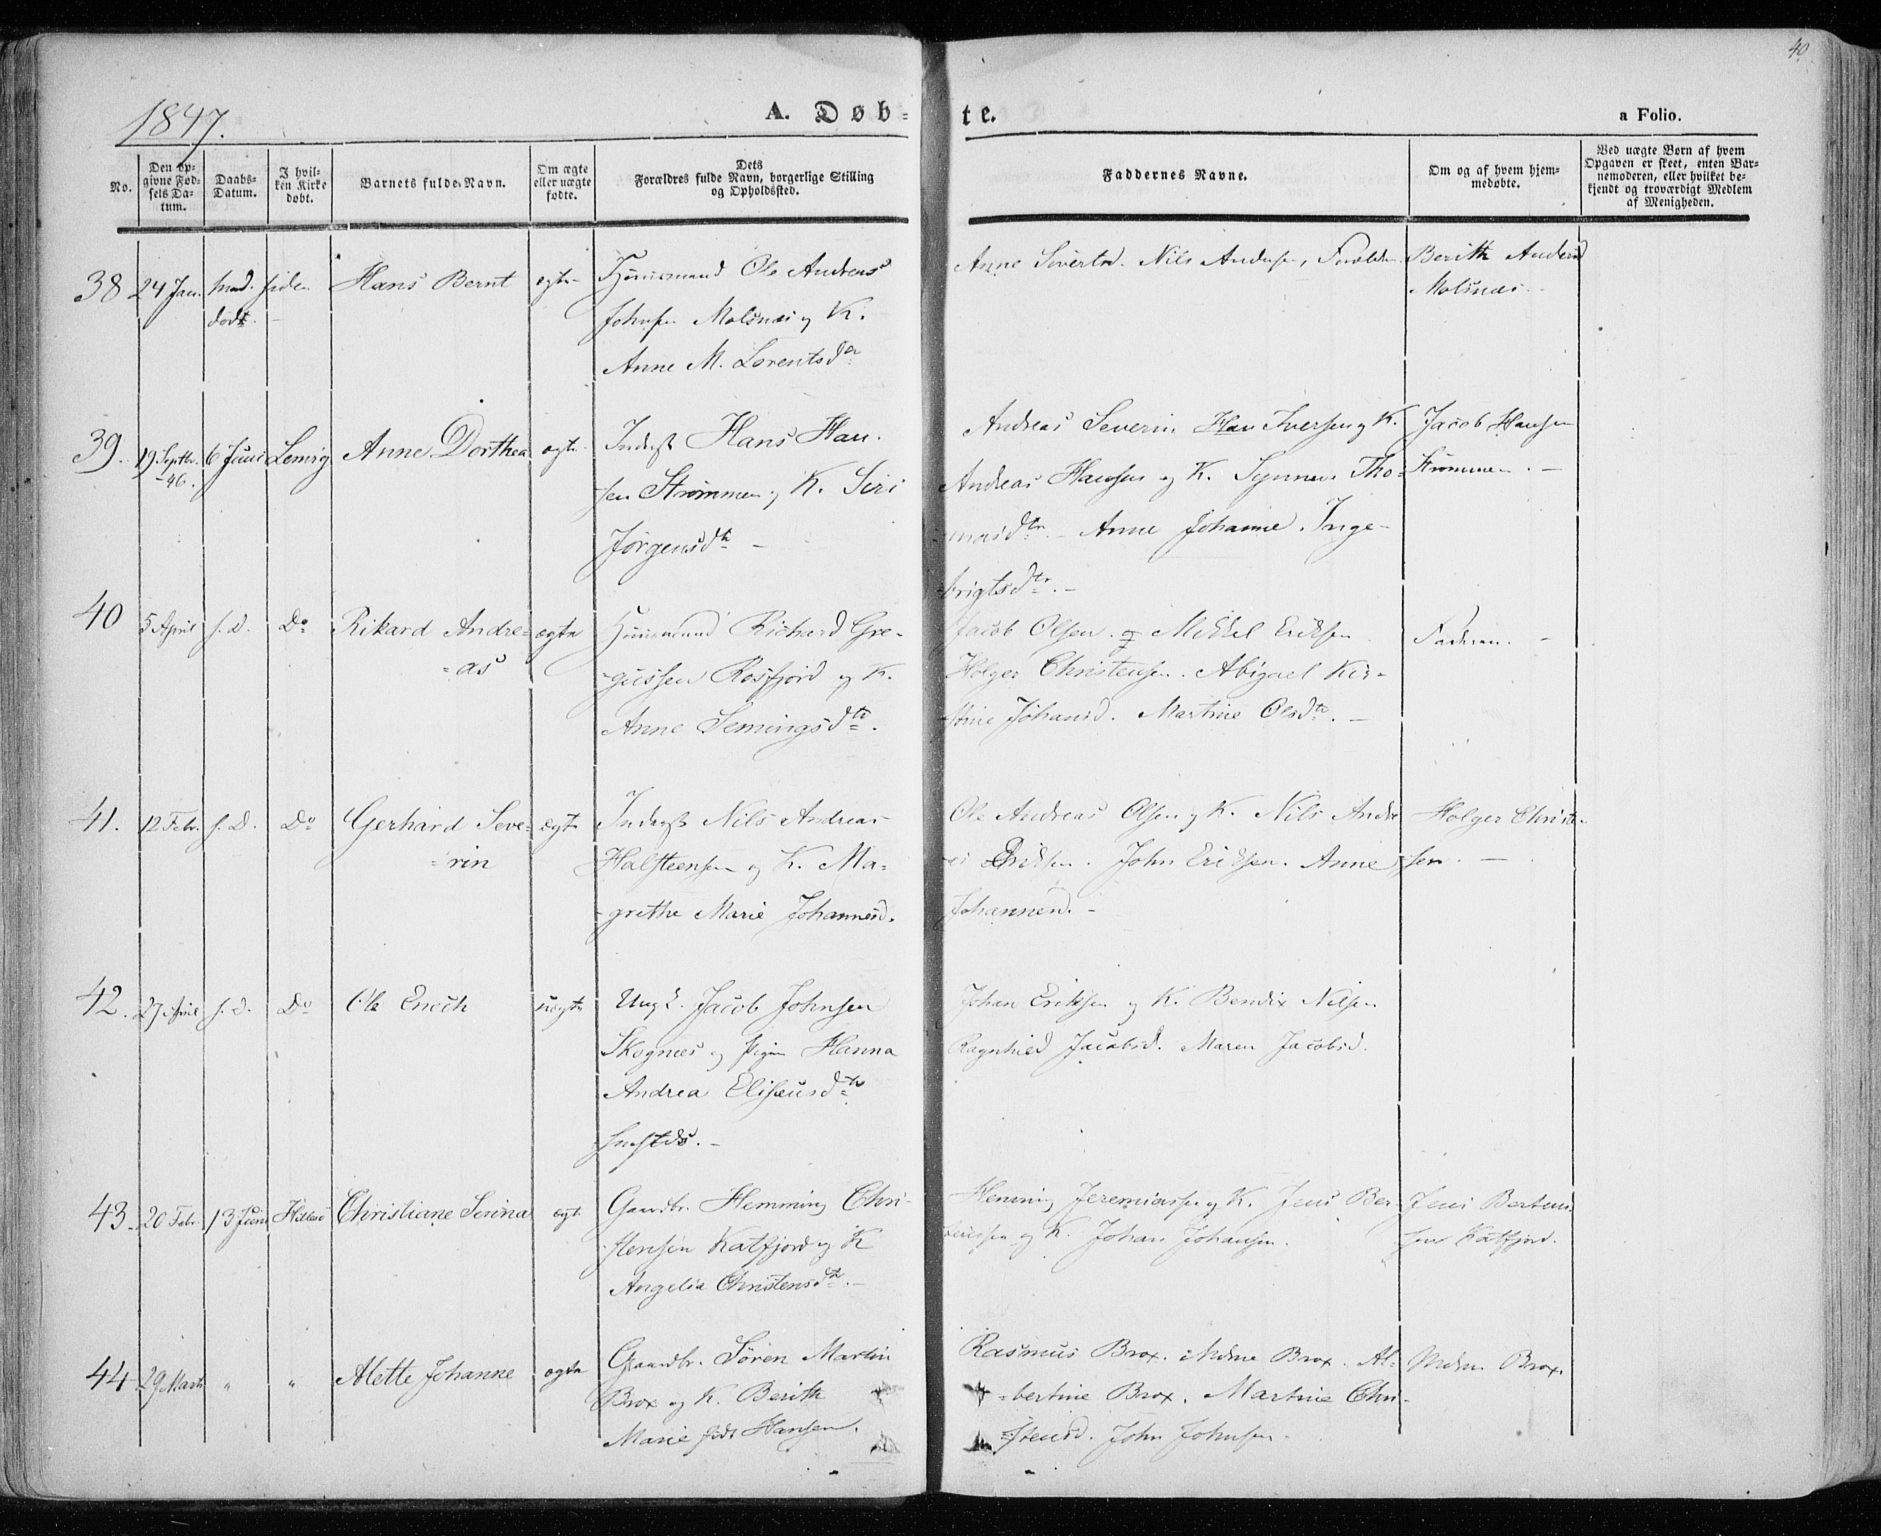 40
1847.
A. Døb-
te.
a Folio.
No.
Den op-
givne Fød-
sels Da-
tum.
Daabs-
Datum.
I hvil-
ken Kirke
døbt.
Barnets fulde Navn.
Om ægte
eller uægte
fødte.
Dets
Forældres fulde Navn, borgerlige Stilling
og Opholdssted.
Faddernes Navne.
Om og af hvem hjem-
medøbte.
Ved uægte Børn af hvem
Opgaven er skeet, enten Bar-
nemoderen, eller hvilket be-
kjendt og troværdigt Medlem
af Menigheden.
38 24 Jan. Hans Bernt ægte
Huusmand Ole Andreas
Johnsen Molsnæs og K.
Anne M. Lorentsdr
Anne Sivertsd. Nils Andersen, Forældr.
Berith Andersd
Molsnæs.
39. 19 Septbr. 6 Juni Lenvig Anne Dorthea ægte
-46.
Inderst Hans Han-
sen Strømmen og K. Siri
Jørgensdtr -
Andreas Severin Han Iversen og K.
Andreas Hansen og K. Synnev Tho-
masdtr. - Anne Johanne Inge-
brigtsdtr. -
Jacob Hansen
Strømmen. -
40 5 April s. D. Do Rikard Andre-
-as
ægte
Huusmand Richard Gre-
-gussen Rosfjord og K.
Anne Semingsdtr.
Jacob Olsen og Mikkel Eriksen
Holger Christensen. Abigael Kir-
stine Johansd. Martine Olsdtr. -
Faderen. -
41. 12 Febr. s. D. Do Gerhard Seve-
-rin
ægte
Inderst Nils Andreas
Halsteensen og K. Ma-
-grethe Marie Johannesd.
Ole Andreas Olsen og K. Nils Andre
Eriksen. John Eriksen. Anne
Johannesd. -
Holger Christen-
sen. -
42. 27 April s. D. Do Ole Enoch uægte
Ungk. Jacob Johnsen
Skognæs og Pigen Hanna
Andrea Elisæusdtr
Johan Eriksen og K. Bendix Nilsen
Ragnhild Jacobsd. Maren Jacobsd.
43. 20 Febr. 13 Juni Hillesø Christiane Serina ægte
Gaardbr. Hemming Chri-
stensen Katfjord og K
Angelia Christensdtr. -
Henning Jeremiassen og K. Jens Ber-
teussen og K. Johan Johansen.
Jens Berteus
sen Katfjord.
44 29 Marts " " Alette Johanne ægte
Gaardbr. Søren Martin
Brox og K. Berith
Marie født Hansen.
Rasmus Brox. Mdme Brox. Al-
-bertine Brox. Martine Chri-
stensd. John Johnsen.
Mdme Brox.